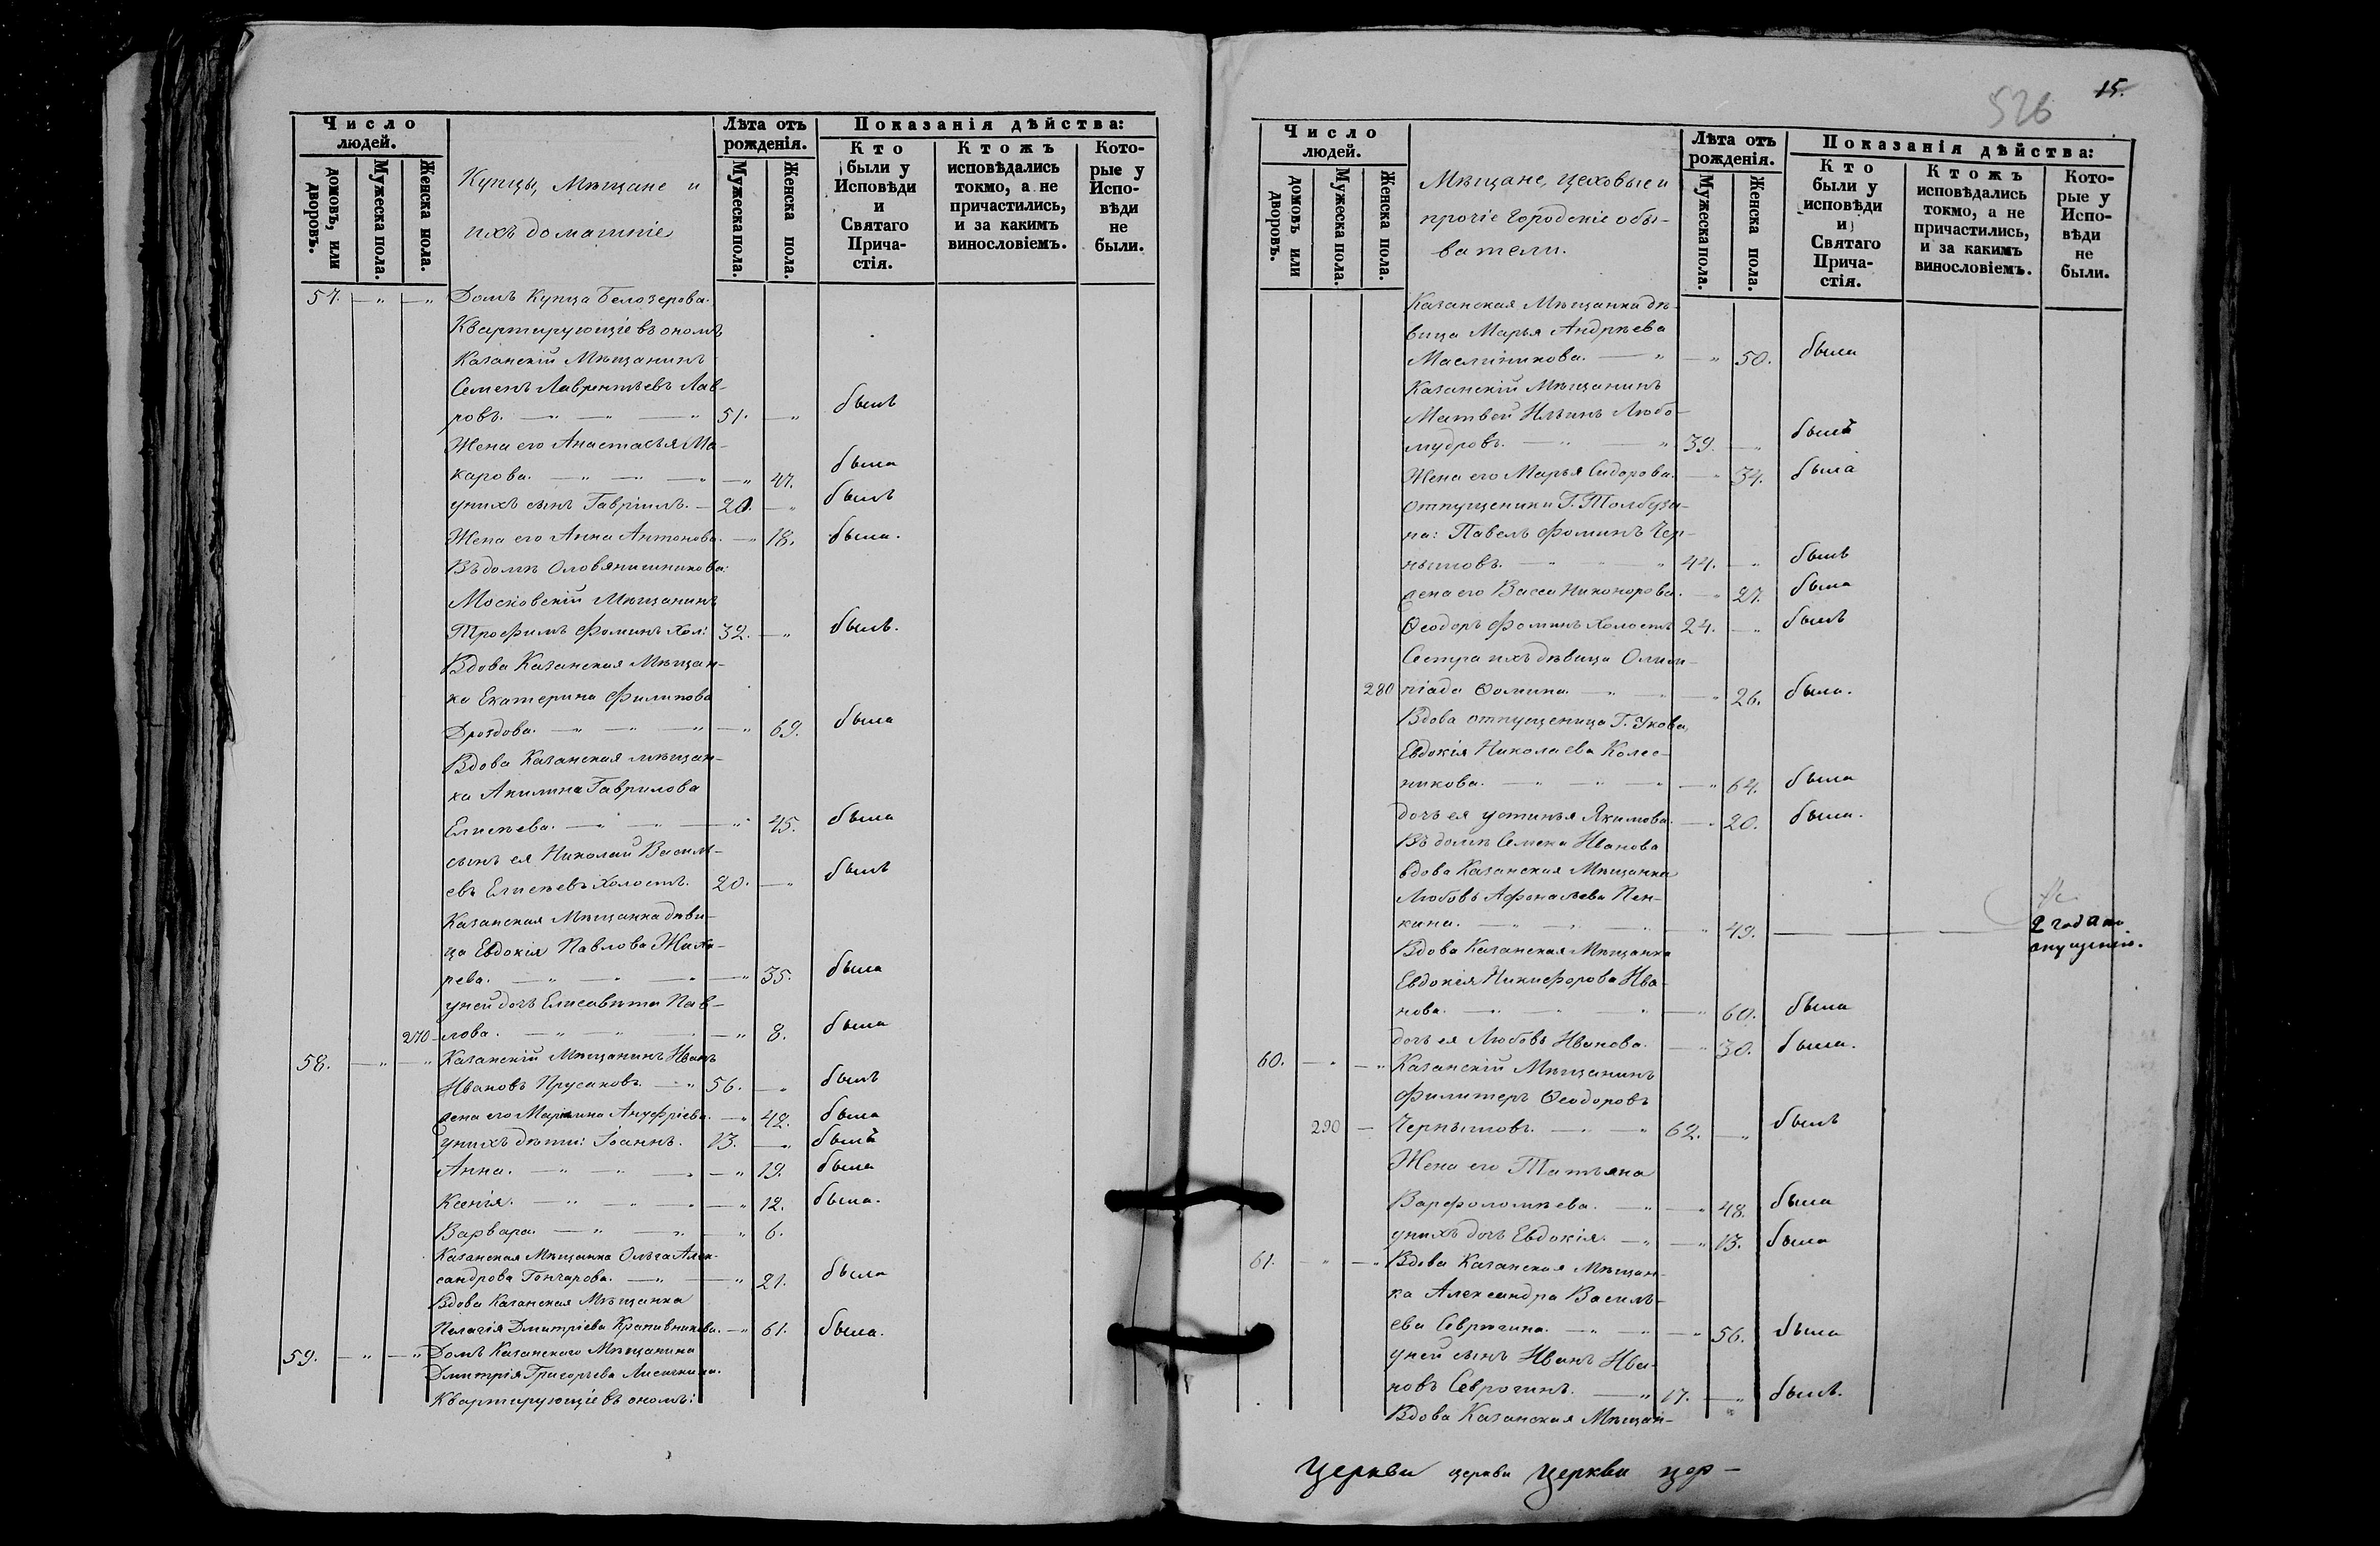 Число людей.
домовъ, или дворовъ.
Мужеска пола.
Женска пола.
Купцы, Мѣщане и
ихъ домашніе
Лѣта отъ рожденія.
Мужеска пола.
Женска пола.
Показанія дѣйства:
Кто были у Исповѣди и Святаго Прича-стія.
Ктожъ исповѣдались токмо, а не причастились, и за какимъ винословіемъ.
Кото-рые у Испо-вѣди не были.
57. — „ — „ Домъ Купца Белозерова.
Квартирующіе въ ономъ
Казанскій Мѣщанинъ
Семенъ Лаврентьевъ Лав-
ровъ. — „ — „ — „ 51. — „ былъ
Жена его Анастасья Ма-
карова. — „ — „ — „ — „ 47. была
у нихъ сынъ Гавріилъ. — 20. — „ былъ
Жена его Анна Антонова. — „ 18. была.
Въ домѣ Оловянишникова:
Московскій Мѣщанинъ
Трофимъ Фоминъ хол: 32. — „ былъ.
Вдова Казанская Мѣщан-
ка Екатерина Филипова
Дроздова. — „ — „ — „ — „ 69. была
Вдова Казанская мѣщан-
ка Акилина Гаврилова
Елисѣева. — „ — „ — „ 45. была
сынъ ея Николай Василь-
евъ Елисѣевъ холостъ. 20. — „ былъ
Казанская Мѣщанка дѣви-
ца Евдокія Павлова Жиха-
рева. — „ — „ — „ — „ 35. была
у ней дочь Елисавѣта Пав-
270 лова. — „ — „ — „ 8. была
58. — „ — „ Казанскій Мѣщанинъ Иванъ
Ивановъ Прусаковъ. — „ 56. — „ былъ
жена его Марина Ануфріева. — „ 42. была
у нихъ дѣти: Іоаннъ. 13. — „ былъ
Анна. — „ — „ — „ — „ 19. была
Ксенія. — „ — „ — „ — „ 12. была.
Варвара. — „ — „ — „ 6.
Казанская Мѣщанка Ольга Алек-
сандрова Гончарова. — „ — „ 21. была
Вдова Казанская Мѣщанка
Пелагія Дмитріева Крапивникова. — „ 61. была.
59. — „ — „ Домъ Казанскаго Мѣщанина
Дмитрія Григорьева Лисичкина.
Квартирующіе въ ономъ:
526
15.
Число людей.
домовъ или дворовъ.
Мужеска пола.
Женска пола.
Мѣщане, цеховые и
прочіе городскіе обы-
ватели.
Лѣта отъ рожденія.
Мужеска пола.
Женска пола.
Показанія дѣйства:
Кто были у исповѣди и Святаго Прича-стія.
Ктожъ исповѣдались токмо, а не причастились, и за какимъ винословіемъ.
Кото-рые у Испо-вѣди не были.
Казанская Мѣщанка дѣ-
вица Марья Андрѣева
Маслиникова. — „ — „ 50. была
Казанскій Мѣщанинъ
Матвей Ильинъ Любо-
мудровъ. — „ — „ 39. — „ былъ
Жена его Марья Сидорова. — „ 34. была
отпущеники Г. Толбузи-
на: Павелъ Фоминъ Чер-
нышовъ. — „ — „ 44. — „ былъ
жена его Васса Никонорова. — „ 27. была
Ѳеодоръ Фоминъ холостъ 24. — „ былъ
Сестра ихъ дѣвица Олим-
280 піада Ѳомина. — „ — „ 26. была.
Вдова отпущеница Г.
Евдокія Николаева Колес-
никова. — „ — „ — „ — „ 64. была
дочь ея Устинья Якимова. — „ 20. была.
Въ домѣ Семена Иванова
вдова Казанская Мѣщанка
Любовь Афонасьева Пен-
кина. — „ — „ — „ 49. — — — 2 года по
опущенію.
Вдова Казанская Мѣщанка
Евдокія Никифорова Ива-
нова. — „ — „ — „ — „ 60. была
дочь ея Любовь Иванова. — „ 30. была.
60. — „ — „ Казанскій Мѣщанинъ
Филитеръ Ѳеодоровъ
290 — Чернышовъ. — „ — „ 62. — „ былъ
Жена его Татьяна
Варфоломѣева. — „ — „ 48. была
у нихъ дочь Евдокія. — „ — „ 13. была
61. — „ — „ Вдова Казанская Мѣщан-
ка Александра Василь-
ева Севрюгина. — „ — „ — „ 56. была
у ней сынъ Иванъ Ива-
новъ Севрюгинъ. — „ 17. — „ былъ.
Вдова Казанская Мѣщан-
Церкви церкви Церкви цер-